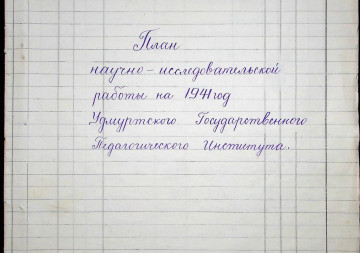 План
научно-исследовательской
работы на 1941 год
Удмуртского Государственного
Педагогического Института.